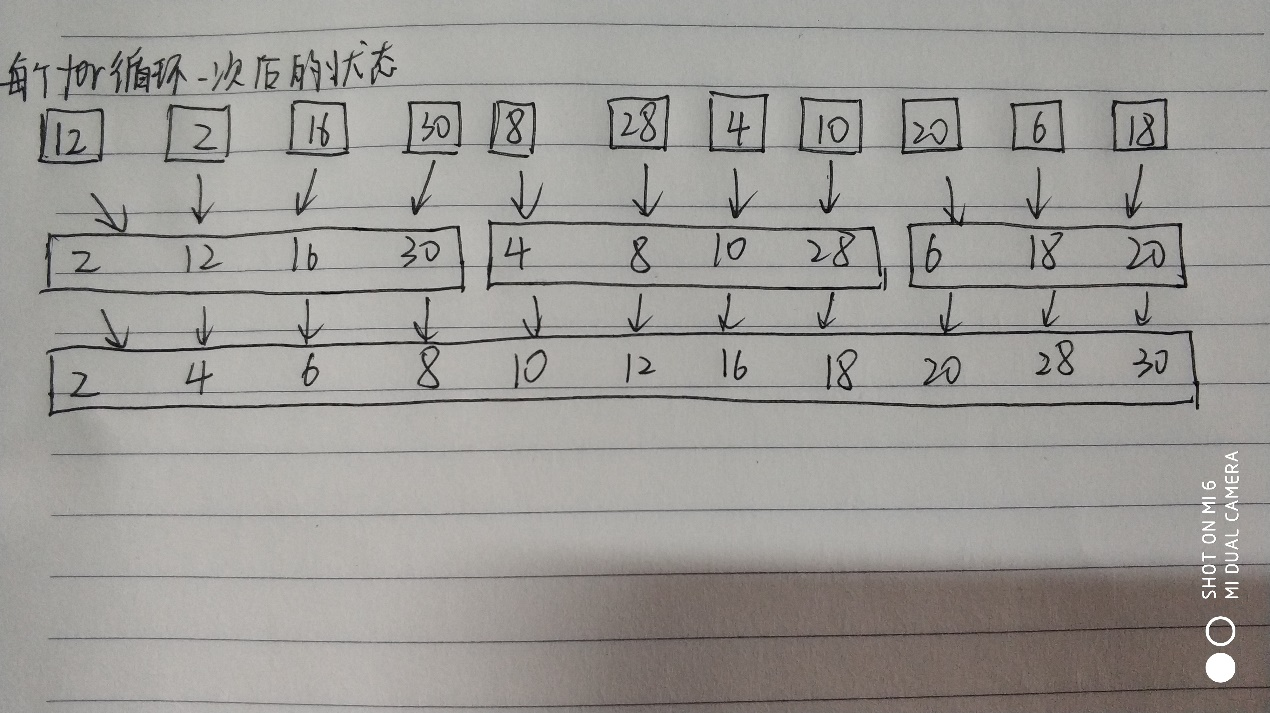 每个for循环一次后的状态
12 2 16 30 8 28 4 10 20 6 18
2 12 16 30 4 8 10 28 6 18 20
2 4 6 8 10 12 16 18 20 28 30
SHOT ON MI 6
MI DUAL CAMERA